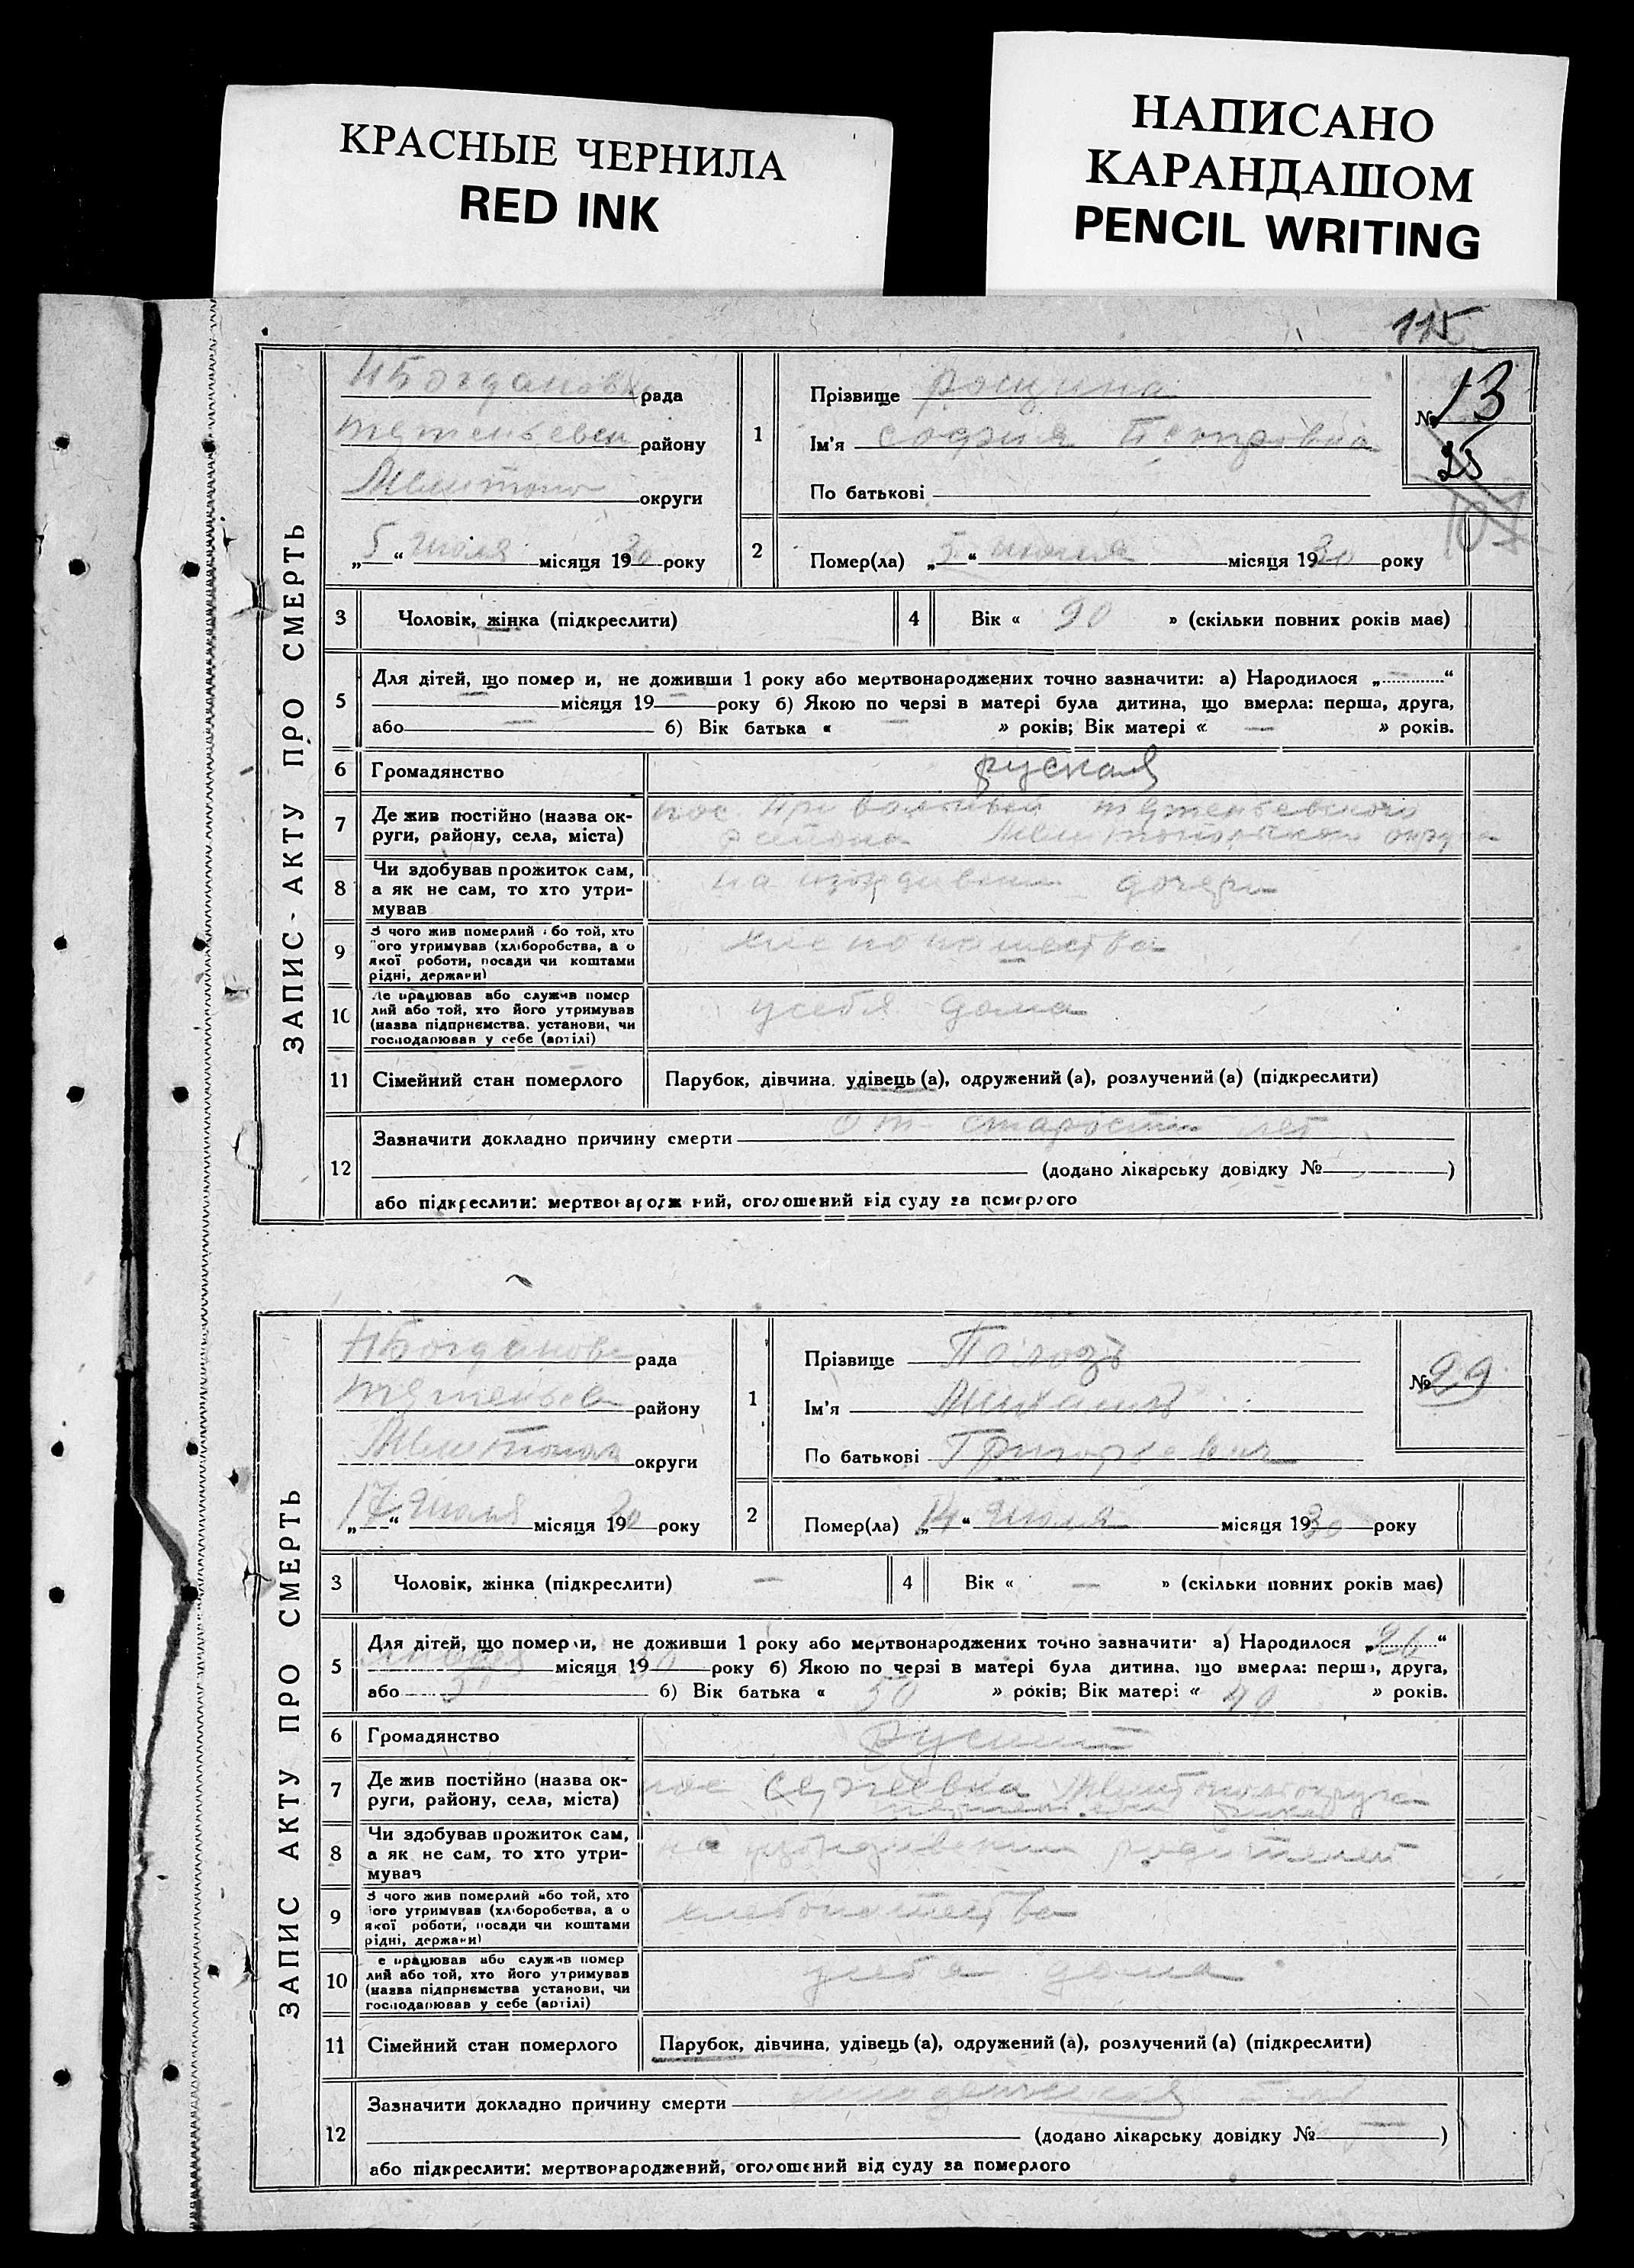 КРАСНЫЕ ЧЕРНИЛА
RED INK
НАПИСАНО
КАРАНДАШОМ
PENCIL WRITING
115
ЗАПИС - АКТУ ПРО СМЕРТЬ
рада
району
округи
„ 5 “ июля місяця 1930 року
1
Прізвище Рощина
Ім'я София Петровна
По батькові
№ 13
25
2
Помер(ла) „ 5 “ июля місяця 1930 року
3 Чоловік, жінка (підкреслити)
4 Вік « 90 » (скільки повних років має)
5
Для дітей, що померли, не доживши 1 року або мертвонароджених точно зазначити: а) Народилося „ — “
— місяця 19 — року б) Якою по черзі в матері була дитина, що вмерла: перша, друга,
або — б) Вік батька « — » років; Вік матері « — » років.
6 Громадянство руская
7
Де жив постійно (назва ок-
руги, району, села, міста)
пос
района
8
Чи здобував прожиток сам,
а як не сам, то хто утри-
мував
на иждивении дочери
9
З чого жив померлий або той, хто
його утримував (хліборобства, а о
якої роботи, посади чи коштами
рідні, держави)
10
Де працював або служив помер
лий або той, хто його утримував
(назва підприємства, установи, чи
господарював у себе (артілі)
усебя дома
11 Сімейний стан померлого Парубок, дівчина, удівець (а), одружений (а), розлучений (а) (підкреслити)
12
Зазначити докладно причину смерти от старости лет
(додано лікарську довідку № )
або підкреслити: мертвонароджений, оголошений від суду за померлого
ЗАПИС АКТУ ПРО СМЕРТЬ
рада
району
округи
„ 17 “ июля місяця 1930 року
1
Прізвище Полозь
Ім'я Михаил
По батькові Григорьевич
№ 29
2
Помер(ла) „ 14 “ июля місяця 1930 року
3 Чоловік, жінка (підкреслити) —
4 Вік « — » (скільки повних років має)
5
Для дітей, що померли, не доживши 1 року або мертвонароджених точно зазначити: а) Народилося „ 26 “
місяця 19 року б) Якою по черзі в матері була дитина, що вмерла: перша, друга,
або 5 б) Вік батька « 50 » років; Вік матері « 40 » років.
6 Громадянство руский
7
Де жив постійно (назва ок-
руги, району, села, міста)
пос
8
Чи здобував прожиток сам,
а як не сам, то хто утри-
мував
на иждивении родителей
9
З чого жив померлий або той, хто
його утримував (хліборобства, а о
якої роботи, посади чи коштами
рідні, держави)
хлебопашества
10
Де працював або служив помер
лий або той, хто його утримував
(назва підприємства установи, чи
господарював у себе (артілі)
усебя дома
11 Сімейний стан померлого Парубок, дівчина, удівець (а), одружений (а), розлучений (а) (підкреслити)
12
Зазначити докладно причину смерти
(додано лікарську довідку № — )
або підкреслити: мертвонароджений, оголошений від суду за померлого